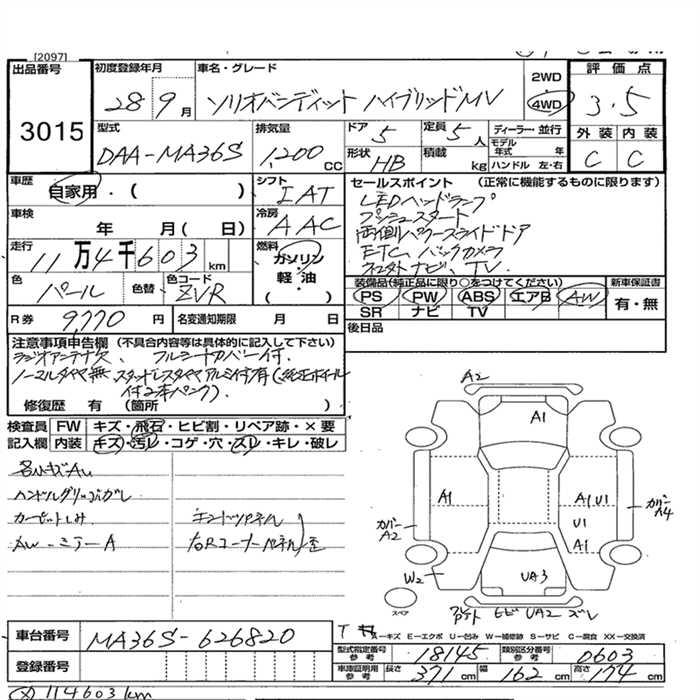 [2097]
出品番号
3015
初度登録年月
28年9月
車名・グレード
ソリオバンディット ハイブリッドMV
2WD
4WD
評価点
3.5
型式
DAA-MA36S
排気量
1,200 CC
ドア
5
形状
HB
定員
5人
積載
kg
ディーラー・並行
モデル年式 年
ハンドル 左・右
外装 内装
C C
車歴
自家用・( )
シフト
IAT
車検
年 月( 日)
冷房
AAC
走行
11万4千603km
燃料
ガソリン
軽・油
( )
色
パール
色替
色コード
ZVR
R券
9,770円
名変通知期限 月 日
セールスポイント (正常に機能するものに限ります)
LEDヘッドランプ
プッシュスタート
両側パワースライドドア
ETC、バックカメラ
ナビ、TV
装備品(純正品に限り○をつけてください)
PS PW ABS エアB AW
SR ナビ TV
新車保証書
有・無
後日品
注意事項申告欄 (不具合内容等は具体的に記入して下さい)
ラジオアンテナ欠、フルシートカバー付
ノーマルタイヤ無、スタッドレスタイヤアルミ付有(純正ホイール
付2本パンク)
修復歴 有 (箇所 )
検査員記入欄
FW キズ・飛石・ヒビ割・リペア跡・×要
内装 キズ・汚レ・コゲ・穴・スレ・キレ・破レ
各小キズAU
ハンドルグリップハガレ
カーペットしみ
AW-ミラーA
右Rコーナーパネル
A2
A1
A1
A1 U1
U1
A1
カバーA2
カバーA4
W2
UA3
ヒビ UA2 ズレ
スペア
車台番号
MA36S-626820
登録番号
A－キズ E－エクボ U－凹み W－補修跡 S－サビ C－腐食 XX－交換済
型式指定番号 参考
18145
類別区分番号 参考
0603
車庫証明用 参考
長さ 371cm 幅 162cm 高さ 174cm
114603km